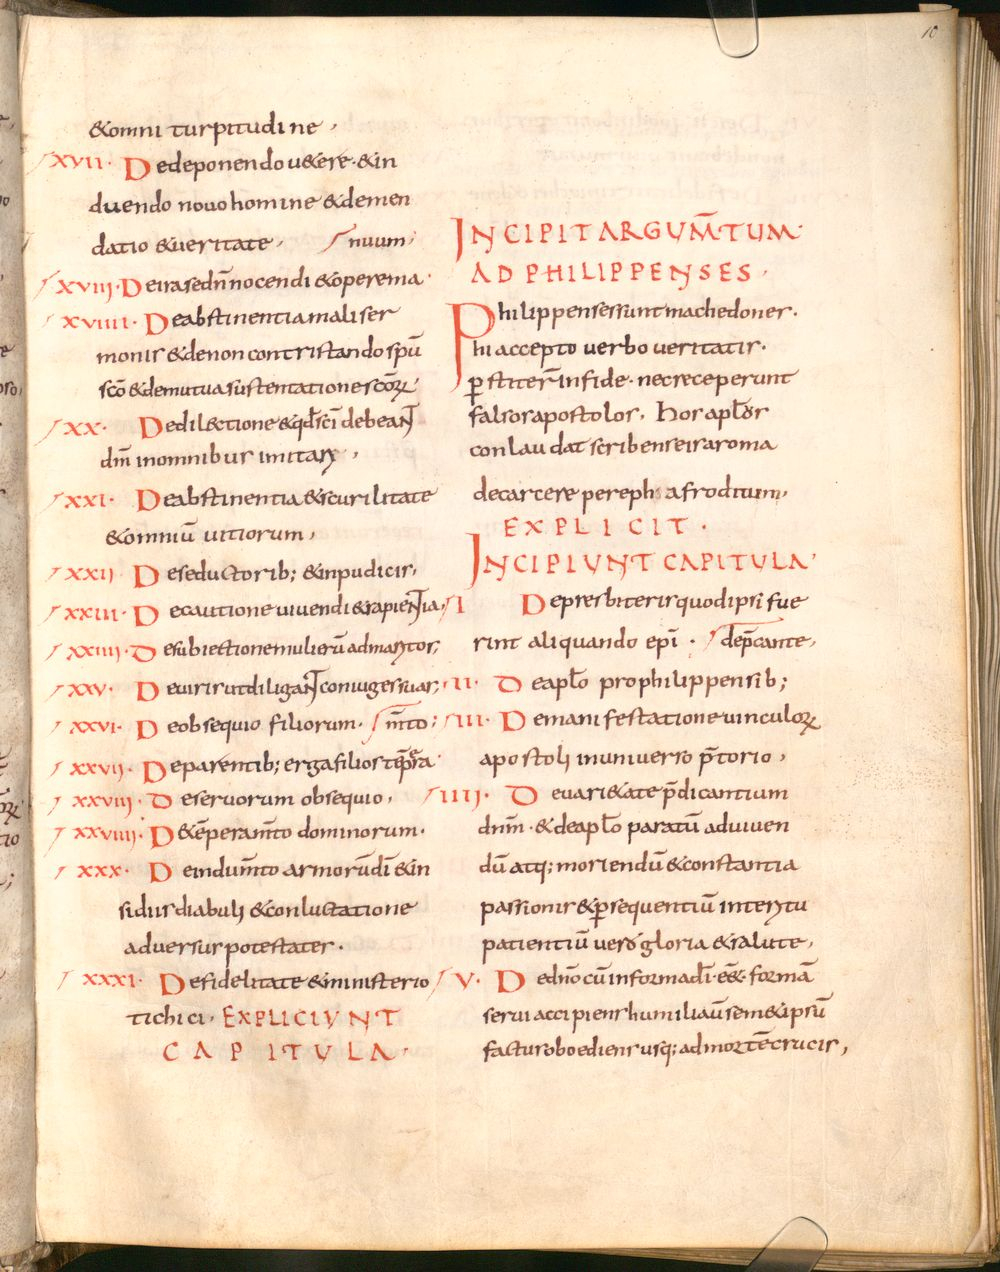 10
&omni turpitudine,
XVII. Dedeponendo u&ere. &in
duendo novo homine &demen
datio &ueritate, nuum;
XVIII. Deirasedn̄ nocendi &operema
XVIIII. Deabstinentia mali ser
monis &denon contristando sp̄u
sc̄o &demutua sustentatione sc̄oꝝ
XX. Dedilectione &qd̄ sc̄i debeant
dn̄m inomnibus imitari,
XXI. Deabstinentia &scurilitate
&omniū uitiorum,
XXII. Deseductorib; &inpudicis,
XXIII. Decautione uiuendi &sapientia,
XXIIII. Desubiectione mulierū admaritos;
XXV. Deuiris utdiligant coniuges suas;
XXVI. Deobsequio filiorum.
XXVII. Deparentib; ergafilios
XXVIII. Deseruorum obsequio,
XXVIIII. D&ēperam̄to dominorum.
XXX. Deindum̄to armorū dī &in
sidiis diabuli &conluctatione
aduersus potestates.
XXXI. Defidelitate &ministerio
tichici. EXPLICIUNT
CAPITULA.
INCIPIT ARGUM̄TUM
AD PHILIPPENSES.
Philippenses sunt machedones.
hi accepto verbo veritatis.
ꝑstiter̄ infide. necreceperunt
falsos apostolos, Hos apl̄os
conlaudat scribens eis aroma
decarcere per epaphroditum,
EXPLICIT.
INCIPIUNT CAPITULA
I Depresbiteris quodipsi fue
rint aliquando ep̄i. dep̄cante,
II. Deapl̄o prophilippensib;
III. Demanifestatione uinculoꝝ
apostoli inuniuerso p̄torio,
IIII. Deuari&ate p̄dicantium
dn̄m. &deapl̄o paratū adviuen
dū atq; moriendū &constantia
passionis &ꝑsequentiū interitu
patientiū vero gloria &salute,
V. Dedn̄o cū informa dī e&. formā
serui accipiens humiliaū sem&ipsū
factus oboediens usq; admortē crucis,